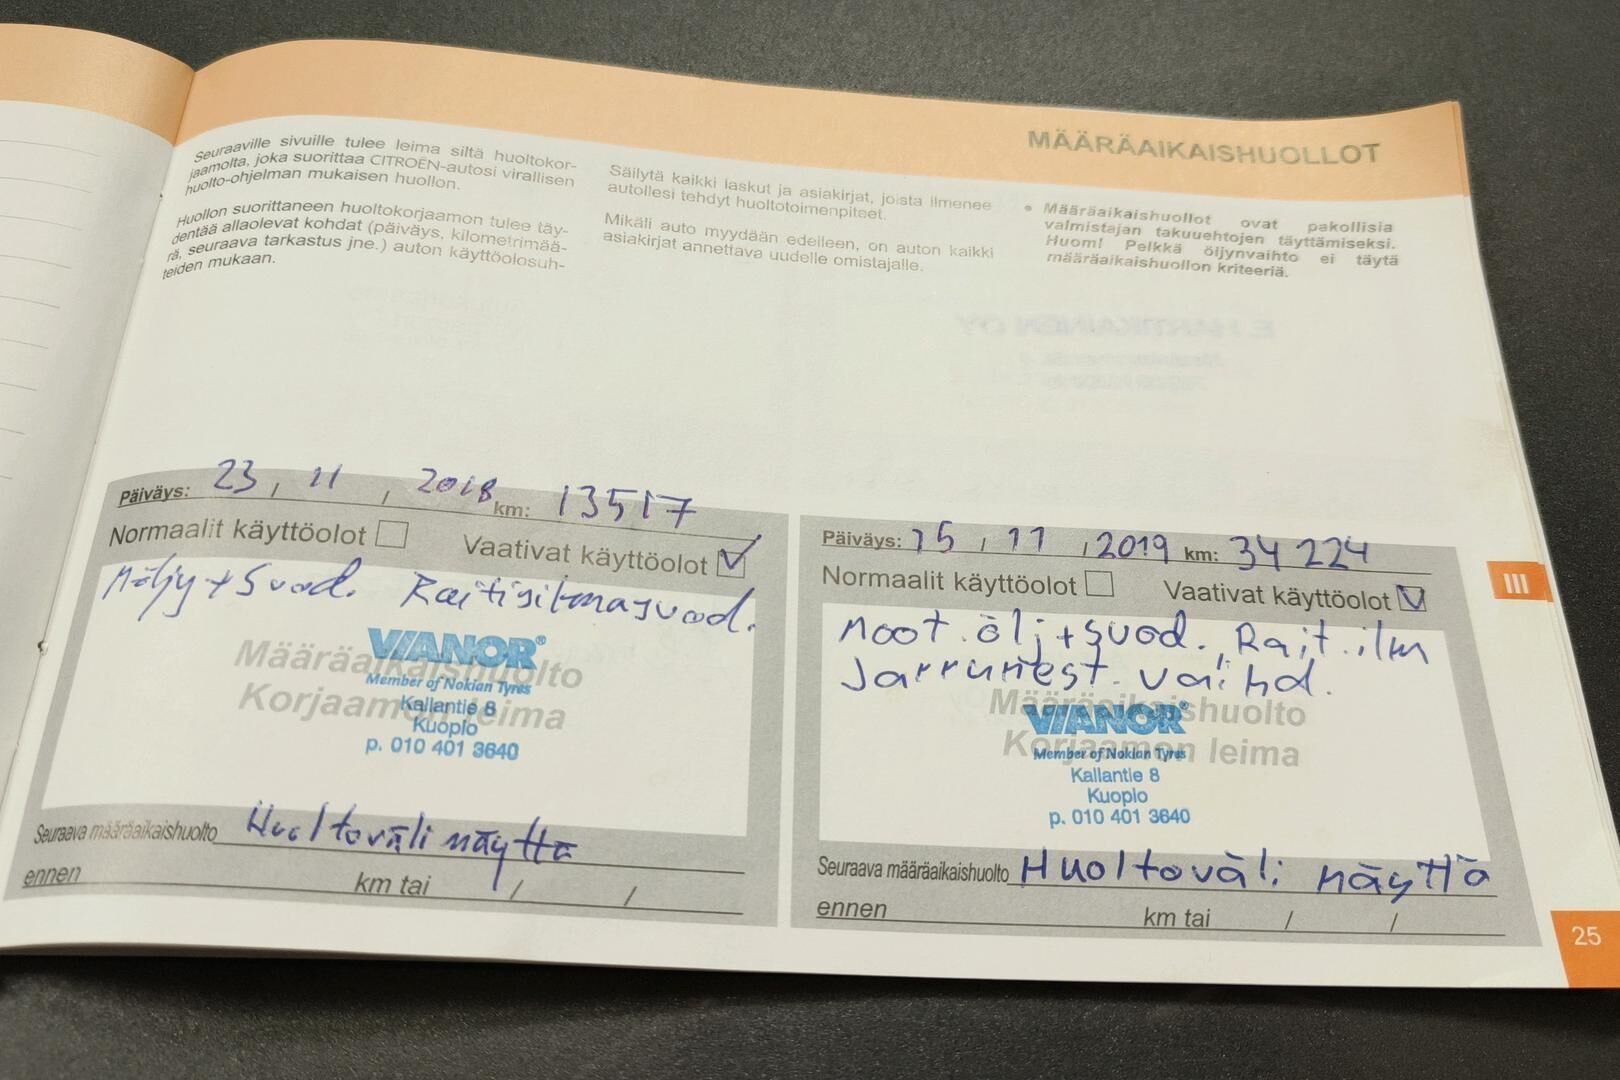 MÄÄRÄAIKAISHUOLLOT
Seuraaville sivuille tulee leima siltä huoltokor-
jaamolta, joka suorittaa CITROËN-autosi virallisen
huolto-ohjelman mukaisen huollon.
Huollon suorittaneen huoltokorjaamon tulee täy-
dentää allaolevat kohdat (päiväys, kilometrimää-
rä, seuraava tarkastus jne.) auton käyttöolosuh-
teiden mukaan.
Säilytä kaikki laskut ja asiakirjat, joista ilmenee
autollesi tehdyt huoltotoimenpiteet.
Mikäli auto myydään edelleen, on auton kaikki
asiakirjat annettava uudelle omistajalle.
• Määräaikaishuollot ovat pakollisia
valmistajan takuuehtojen täyttämiseksi.
Huom! Pelkkä öljynvaihto ei täytä
määräaikaishuollon kriteeriä.
Päiväys: 23 / 11 / 2018 km: 13517
Normaalit käyttöolot Vaativat käyttöolot
Möljy + Suod. Raitisilmasuod.
Määräaikaishuolto
Korjaamon leima
VIANOR®
Member of Nokian Tyres
Kallantie 8
Kuopio
p. 010 401 3640
Seuraava määräaikaishuolto Huoltoväli näyttö
ennen km tai / /
Päiväys: 15 / 11 / 2019 km: 34 224
Normaalit käyttöolot Vaativat käyttöolot
Moot. ölj + suod. Rait.ilm
Jarrunest. vaihd.
Määräaikaishuolto
Korjaamon leima
VIANOR®
Member of Nokian Tyres
Kallantie 8
Kuopio
p. 010 401 3640
Seuraava määräaikaishuolto Huoltoväli näyttö
ennen km tai / /
III
25